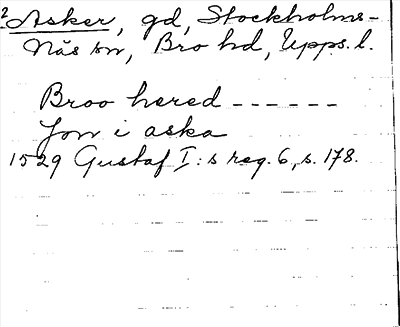 2 Asker, gd, Stockholms-
Näs sn, Bro hd, Upps. l.
Broo hered ------
Jon i aska
1529 Gustaf I:s reg. 6, s. 178.